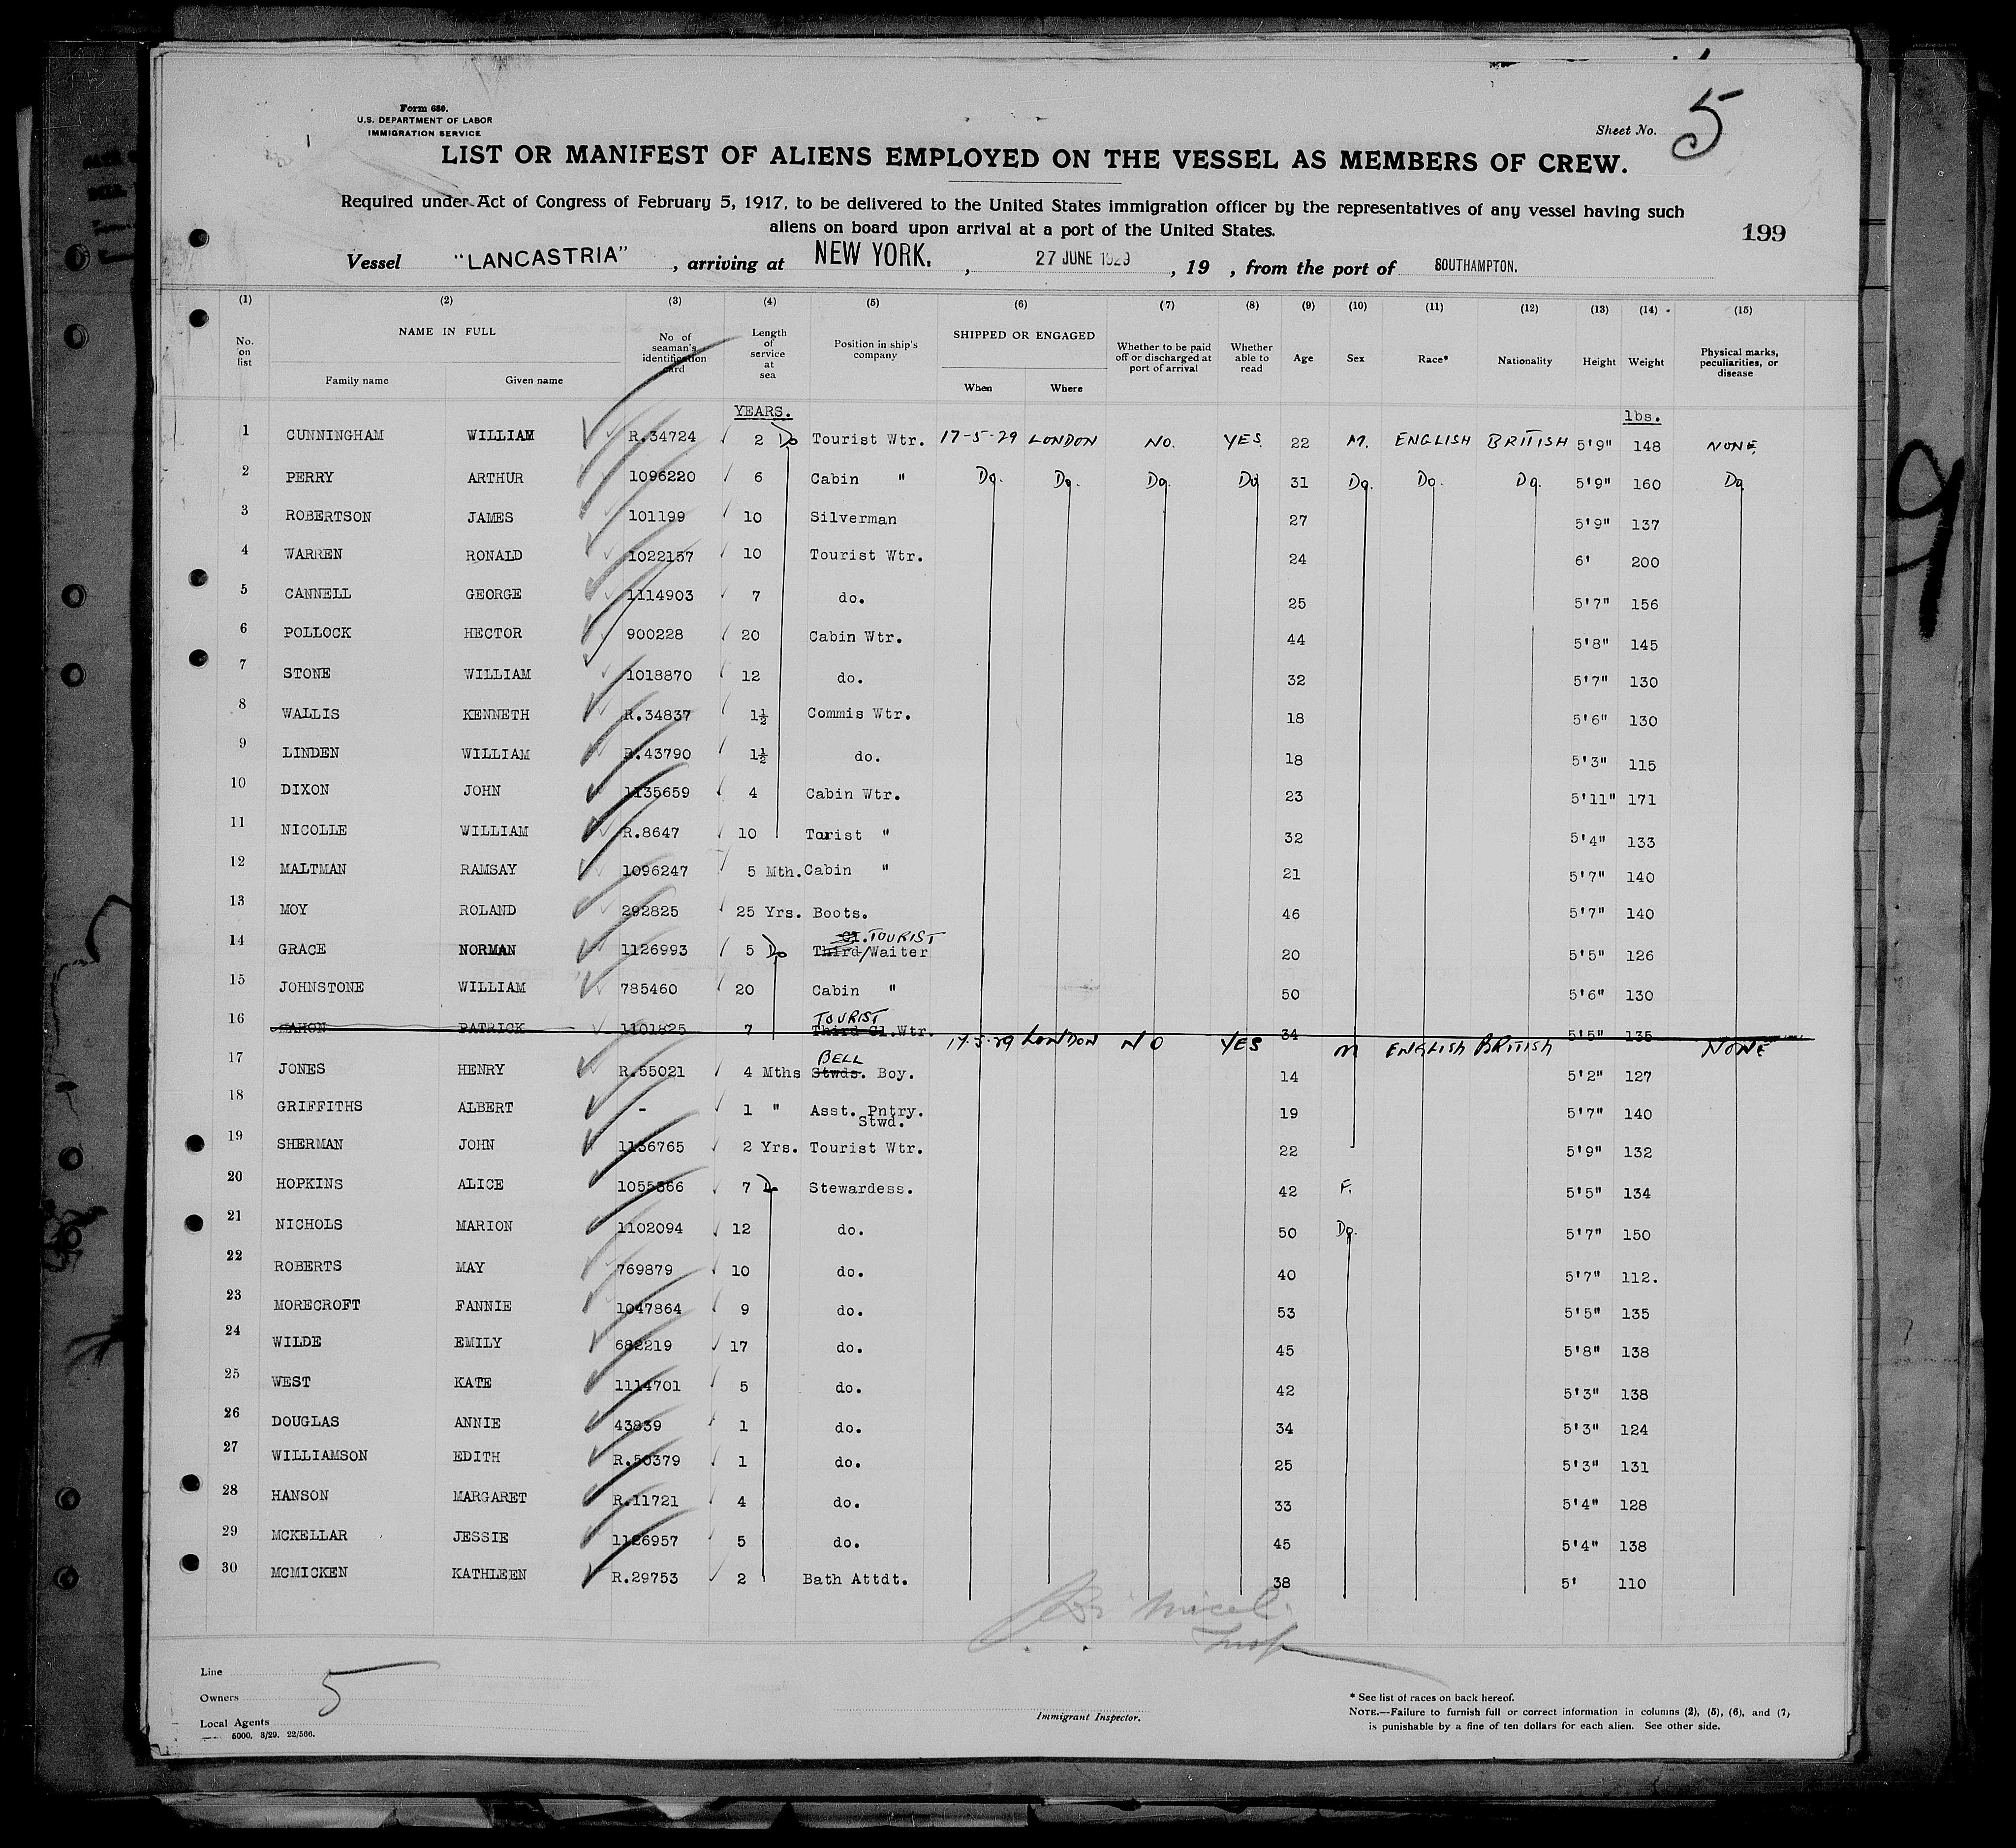 Form 680.
U.S. DEPARTMENT OF LABOR
IMMIGRATION SERVICE
Sheet No. 5
LIST OR MANIFEST OF ALIENS EMPLOYED ON THE VESSEL AS MEMBERS OF CREW.
Required under Act of Congress of February 5, 1917, to be delivered to the United States immigration officer by the representatives of any vessel having such
aliens on board upon arrival at a port of the United States.
199
Vessel "LANCASTRIA" , arriving at NEW YORK. , 27 JUNE 1929 , 19 , from the port of SOUTHAMPTON.
(1) (2) (3) (4) (5) (6) (7) (8) (9) (10) (11) (12) (13) (14) (15)
No. on list NAME IN FULL Family name Given name No of seaman's identification card Length of service at sea Position in ship's company SHIPPED OR ENGAGED When Where Whether to be paid off or discharged at port of arrival Whether able to read Age Sex Race* Nationality Height Weight Physical marks, peculiarities, or disease
YEARS. lbs.
1 CUNNINGHAM WILLIAM R.34724 2 Do Tourist Wtr. 17-5-29 LONDON NO. YES. 22 M. ENGLISH BRITISH 5'9" 148 NONE,
2 PERRY ARTHUR 1096220 6 Cabin " Do. Do. Do. Do 31 Do. Do. Do. 5'9" 160 Do
3 ROBERTSON JAMES 101199 10 Silverman 27 5'9" 137
4 WARREN RONALD 1022157 10 Tourist Wtr. 24 6' 200
5 CANNELL GEORGE 1114903 7 do. 25 5'7" 156
6 POLLOCK HECTOR 900228 20 Cabin Wtr. 44 5'8" 145
7 STONE WILLIAM 1018870 12 do. 32 5'7" 130
8 WALLIS KENNETH R.34837 1½ Commis Wtr. 18 5'6" 130
9 LINDEN WILLIAM R.43790 1½ do. 18 5'3" 115
10 DIXON JOHN 1135659 4 Cabin Wtr. 23 5'11" 171
11 NICOLLE WILLIAM R.8647 10 Torist " 32 5'4" 133
12 MALTMAN RAMSAY 1096247 5 Mth. Cabin " 21 5'7" 140
13 MOY ROLAND 292825 25 Yrs. Boots. 46 5'7" 140
14 GRACE NORMAN 1126993 5 Do Cl. TOURIST Third/Waiter 20 5'5" 126
15 JOHNSTONE WILLIAM 785460 20 Cabin " 50 5'6" 130
16 MAHON PATRICK 1101825 7 TOURIST Third Cl. Wtr. 34 5'5" 135
17-5-29 LONDON NO YES M ENGLISH BRITISH NONE
17 JONES HENRY R.55021 4 Mths BELL Stwds. Boy. 14 5'2" 127
18 GRIFFITHS ALBERT - 1 " Asst. Pntry. Stwd. 19 5'7" 140
19 SHERMAN JOHN 1136765 2 Yrs. Tourist Wtr. 22 5'9" 132
20 HOPKINS ALICE 1055366 7 Do Stewardess. 42 F. 5'5" 134
21 NICHOLS MARION 1102094 12 do. 50 Do. 5'7" 150
22 ROBERTS MAY 769879 10 do. 40 5'7" 112.
23 MORECROFT FANNIE 1047864 9 do. 53 5'5" 135
24 WILDE EMILY 682219 17 do. 45 5'8" 138
25 WEST KATE 1114701 5 do. 42 5'3" 138
26 DOUGLAS ANNIE 43839 1 do. 34 5'3" 124
27 WILLIAMSON EDITH R.50379 1 do. 25 5'3" 131
28 HANSON MARGARET R.11721 4 do. 33 5'4" 128
29 MCKELLAR JESSIE 1126957 5 do. 45 5'4" 138
30 MCMICKEN KATHLEEN R.29753 2 Bath Attdt. 38 5' 110
Line
Owners 5
Local Agents
5000. 3/29. 22/566.
Immigrant Inspector.
* See list of races on back hereof.
NOTE.—Failure to furnish full or correct information in columns (2), (5), (6), and (7)
is punishable by a fine of ten dollars for each alien. See other side.
9